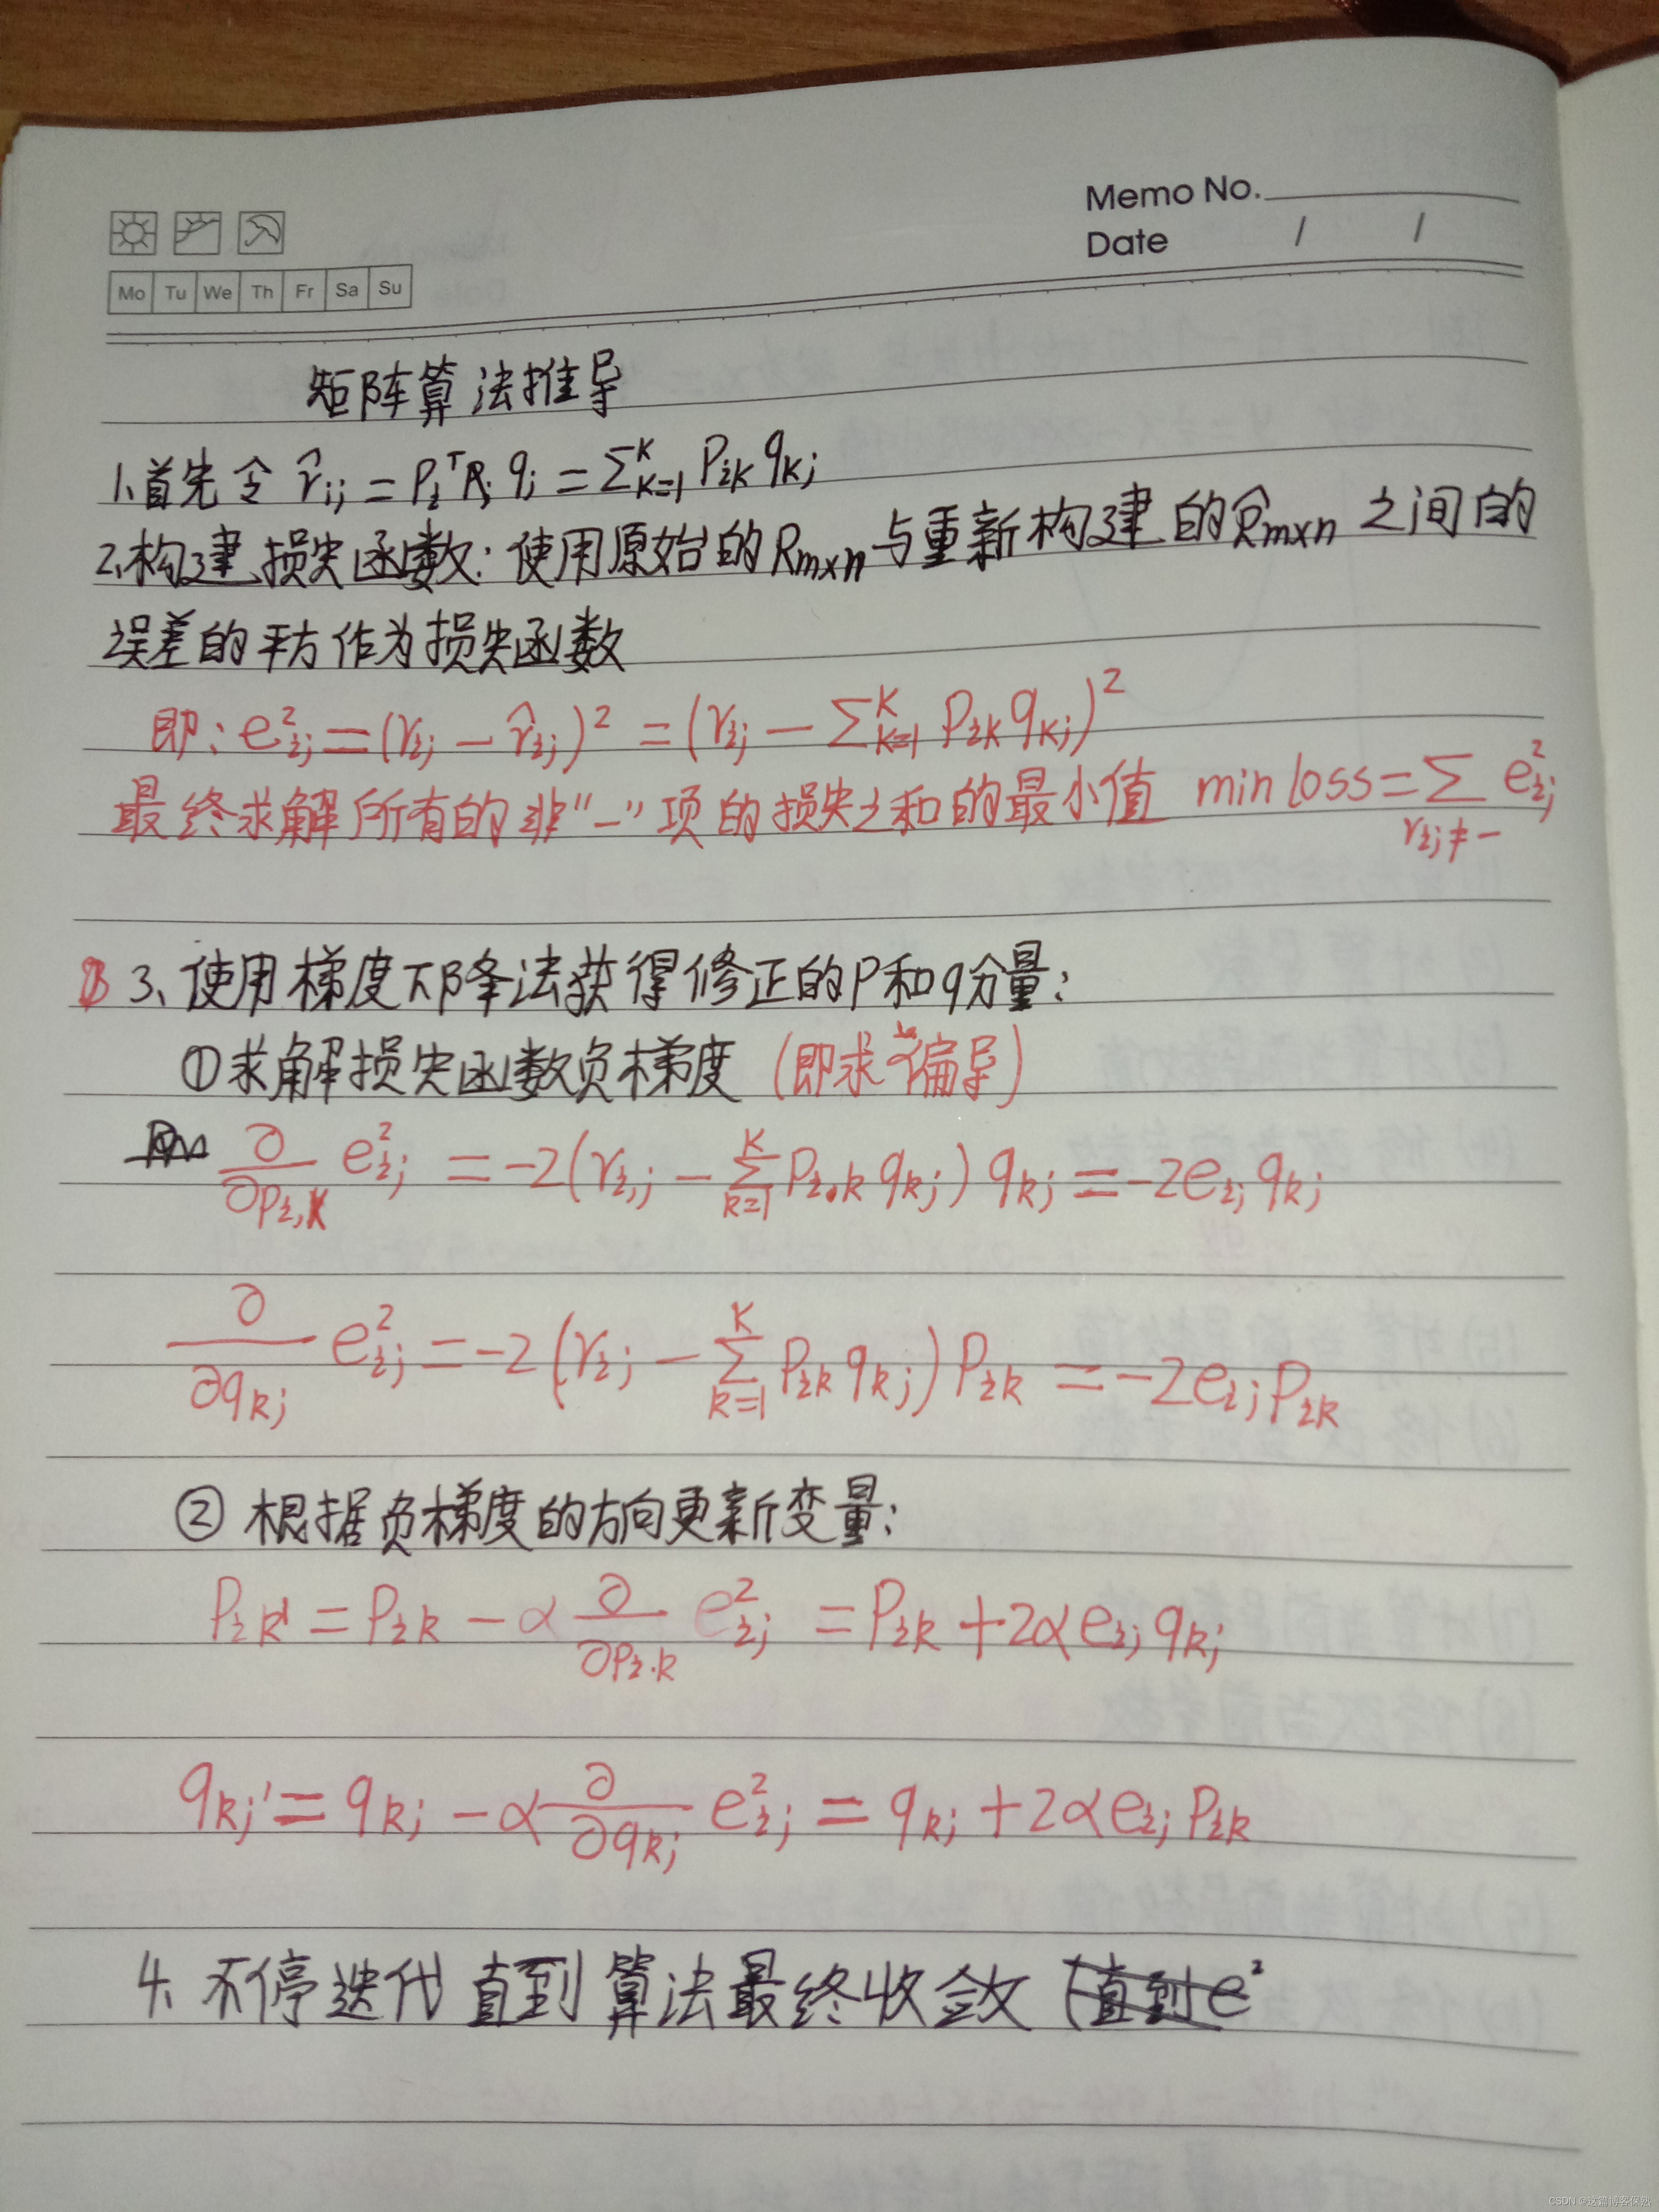 Memo No.
Date / /
Mo Tu We Th Fr Sa Su
矩阵算法推导
1、首先令 r̂ij = Pi^T qj = Σ_{K=1}^{K} Pik qkj
2、构建损失函数：使用原始的Rm×n与重新构建的R̂m×n之间的
误差的平方作为损失函数
即：e²ij = (rij − r̂ij)² = (rij − Σ_{K=1}^{K} Pik qkj)²
最终求解所有的非“−”项的损失之和的最小值 min loss = Σ_{rij≠−} e²ij
3、使用梯度下降法获得修正的P和q分量：
①求解损失函数负梯度（即求偏导）
∂/∂Pi,k e²ij = −2(ri,j − Σ_{k=1}^{K} Pi,k qkj) qkj = −2eij qkj
∂/∂qkj e²ij = −2(rij − Σ_{k=1}^{K} Pik qkj) Pik = −2eij Pik
②根据负梯度的方向更新变量：
Pik' = Pik − α ∂/∂Pi.k e²ij = Pik + 2αeij qkj
qkj' = qkj − α ∂/∂qkj e²ij = qkj + 2αeij Pik
4、不停迭代直到算法最终收敛（直到e²
CSDN @这篇博客保熟